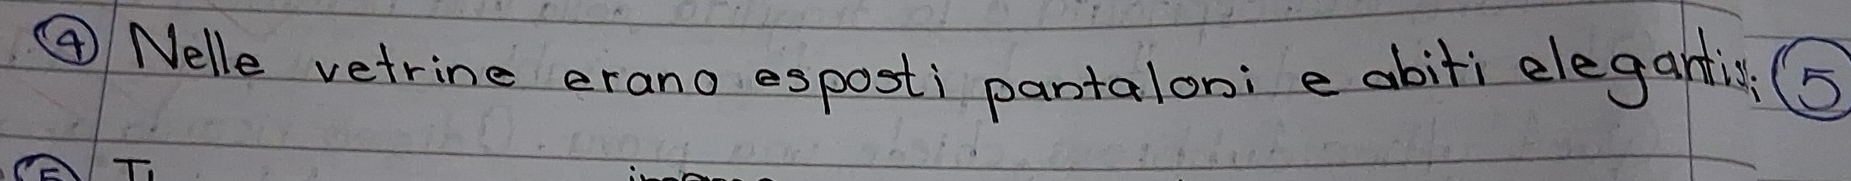 ④ Nelle vetrine erano esposti pantaloni e abiti eleganti; ⑤
⑤ Ti